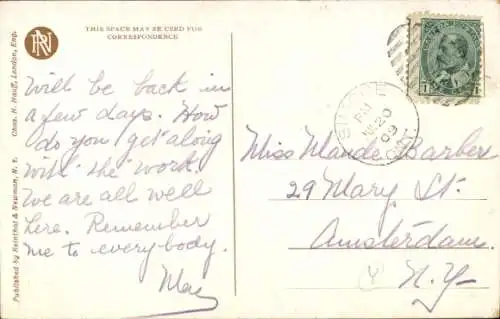 RN
THIS SPACE MAY BE USED FOR
CORRESPONDENCE
Will be back in
a few days. How
do you get along
with the work.
We are all well
here. Remember
me to everybody.
May
Published by Reinthal & Newman, N. Y.
Chas. H. Hauff, London, Eng.
PM
20
09
ONT.
1
Miss Maude Barbere
29 Mary St.
Amsterdam.
N.Y.